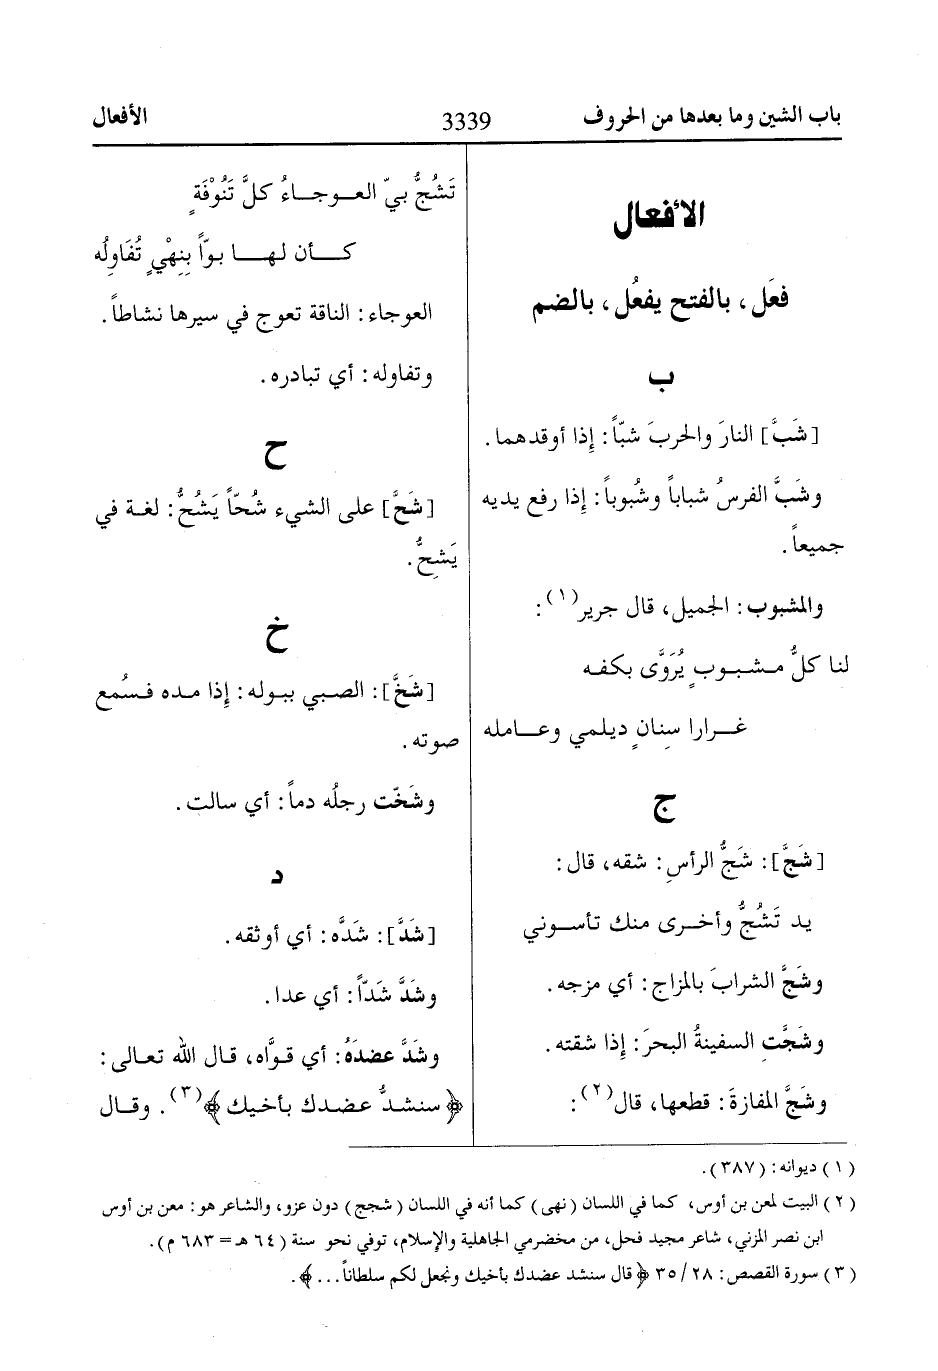 باب الشين وما بعدها من الحروف 3339 الأفعال
الأفعال
فعَل، بالفتح يفعُل، بالضم
ب
[شَبَّ] النارَ والحربَ شبّاً: إذا أوقدهما.
وشَبَّ الفرسُ شباباً وشُبوباً: إذا رفع يديه
جميعاً.
والمشبوب: الجميل، قال جرير(١):
لنا كلُّ مشبوبٍ يُرَوَّى بكفه
غرارا سِنانٍ ديلمي وعامله
ج
[شَجَّ]: شَجُّ الرأسِ: شقه، قال:
يد تَشُجُّ وأخرى منك تأسوني
وشَجَّ الشرابَ بالمزاج: أي مزجه.
وشَجَّت السفينةُ البحرَ: إذا شقته.
وشَجَّ المفازةَ: قطعها، قال(٢):
تَشُجُّ بيّ العوجاءُ كلَّ تَنُوْفَةٍ
كأن لها بوّاً بِنِهْيٍ تُفَاوِلُه
العوجاء: الناقة تعوج في سيرها نشاطاً.
وتفاوله: أي تبادره.
ح
[شَحَّ] على الشيء شُحّاً يَشُحُّ: لغة في
يَشِحُّ.
خ
[شَخَّ]: الصبي ببوله: إذا مده فسُمع
صوته.
وشَخّت رجلُه دماً: أي سالت.
د
[شَدَّ]: شَدَّه: أي أوثقه.
وشَدَّ شَدّاً: أي عدا.
وشَدَّ عضدَهُ: أي قوَّاه، قال الله تعالى:
﴿سنشدُّ عضدك بأخيك﴾(٣). وقال
(١) ديوانه: (٣٨٧).
(٢) البيت لمعن بن أوس، كما في اللسان (نهى) كما أنه في اللسان (شجج) دون عزو، والشاعر هو: معن بن أوس
ابن نصر المزني، شاعر مجيد فحل، من مخضرمي الجاهلية والإسلام، توفي نحو سنة (٦٤ هـ = ٦٨٣ م).
(٣) سورة القصص: ٢٨/ ٣٥ ﴿قال سنشد عضدك بأخيك ونجعل لكم سلطاناً...﴾.